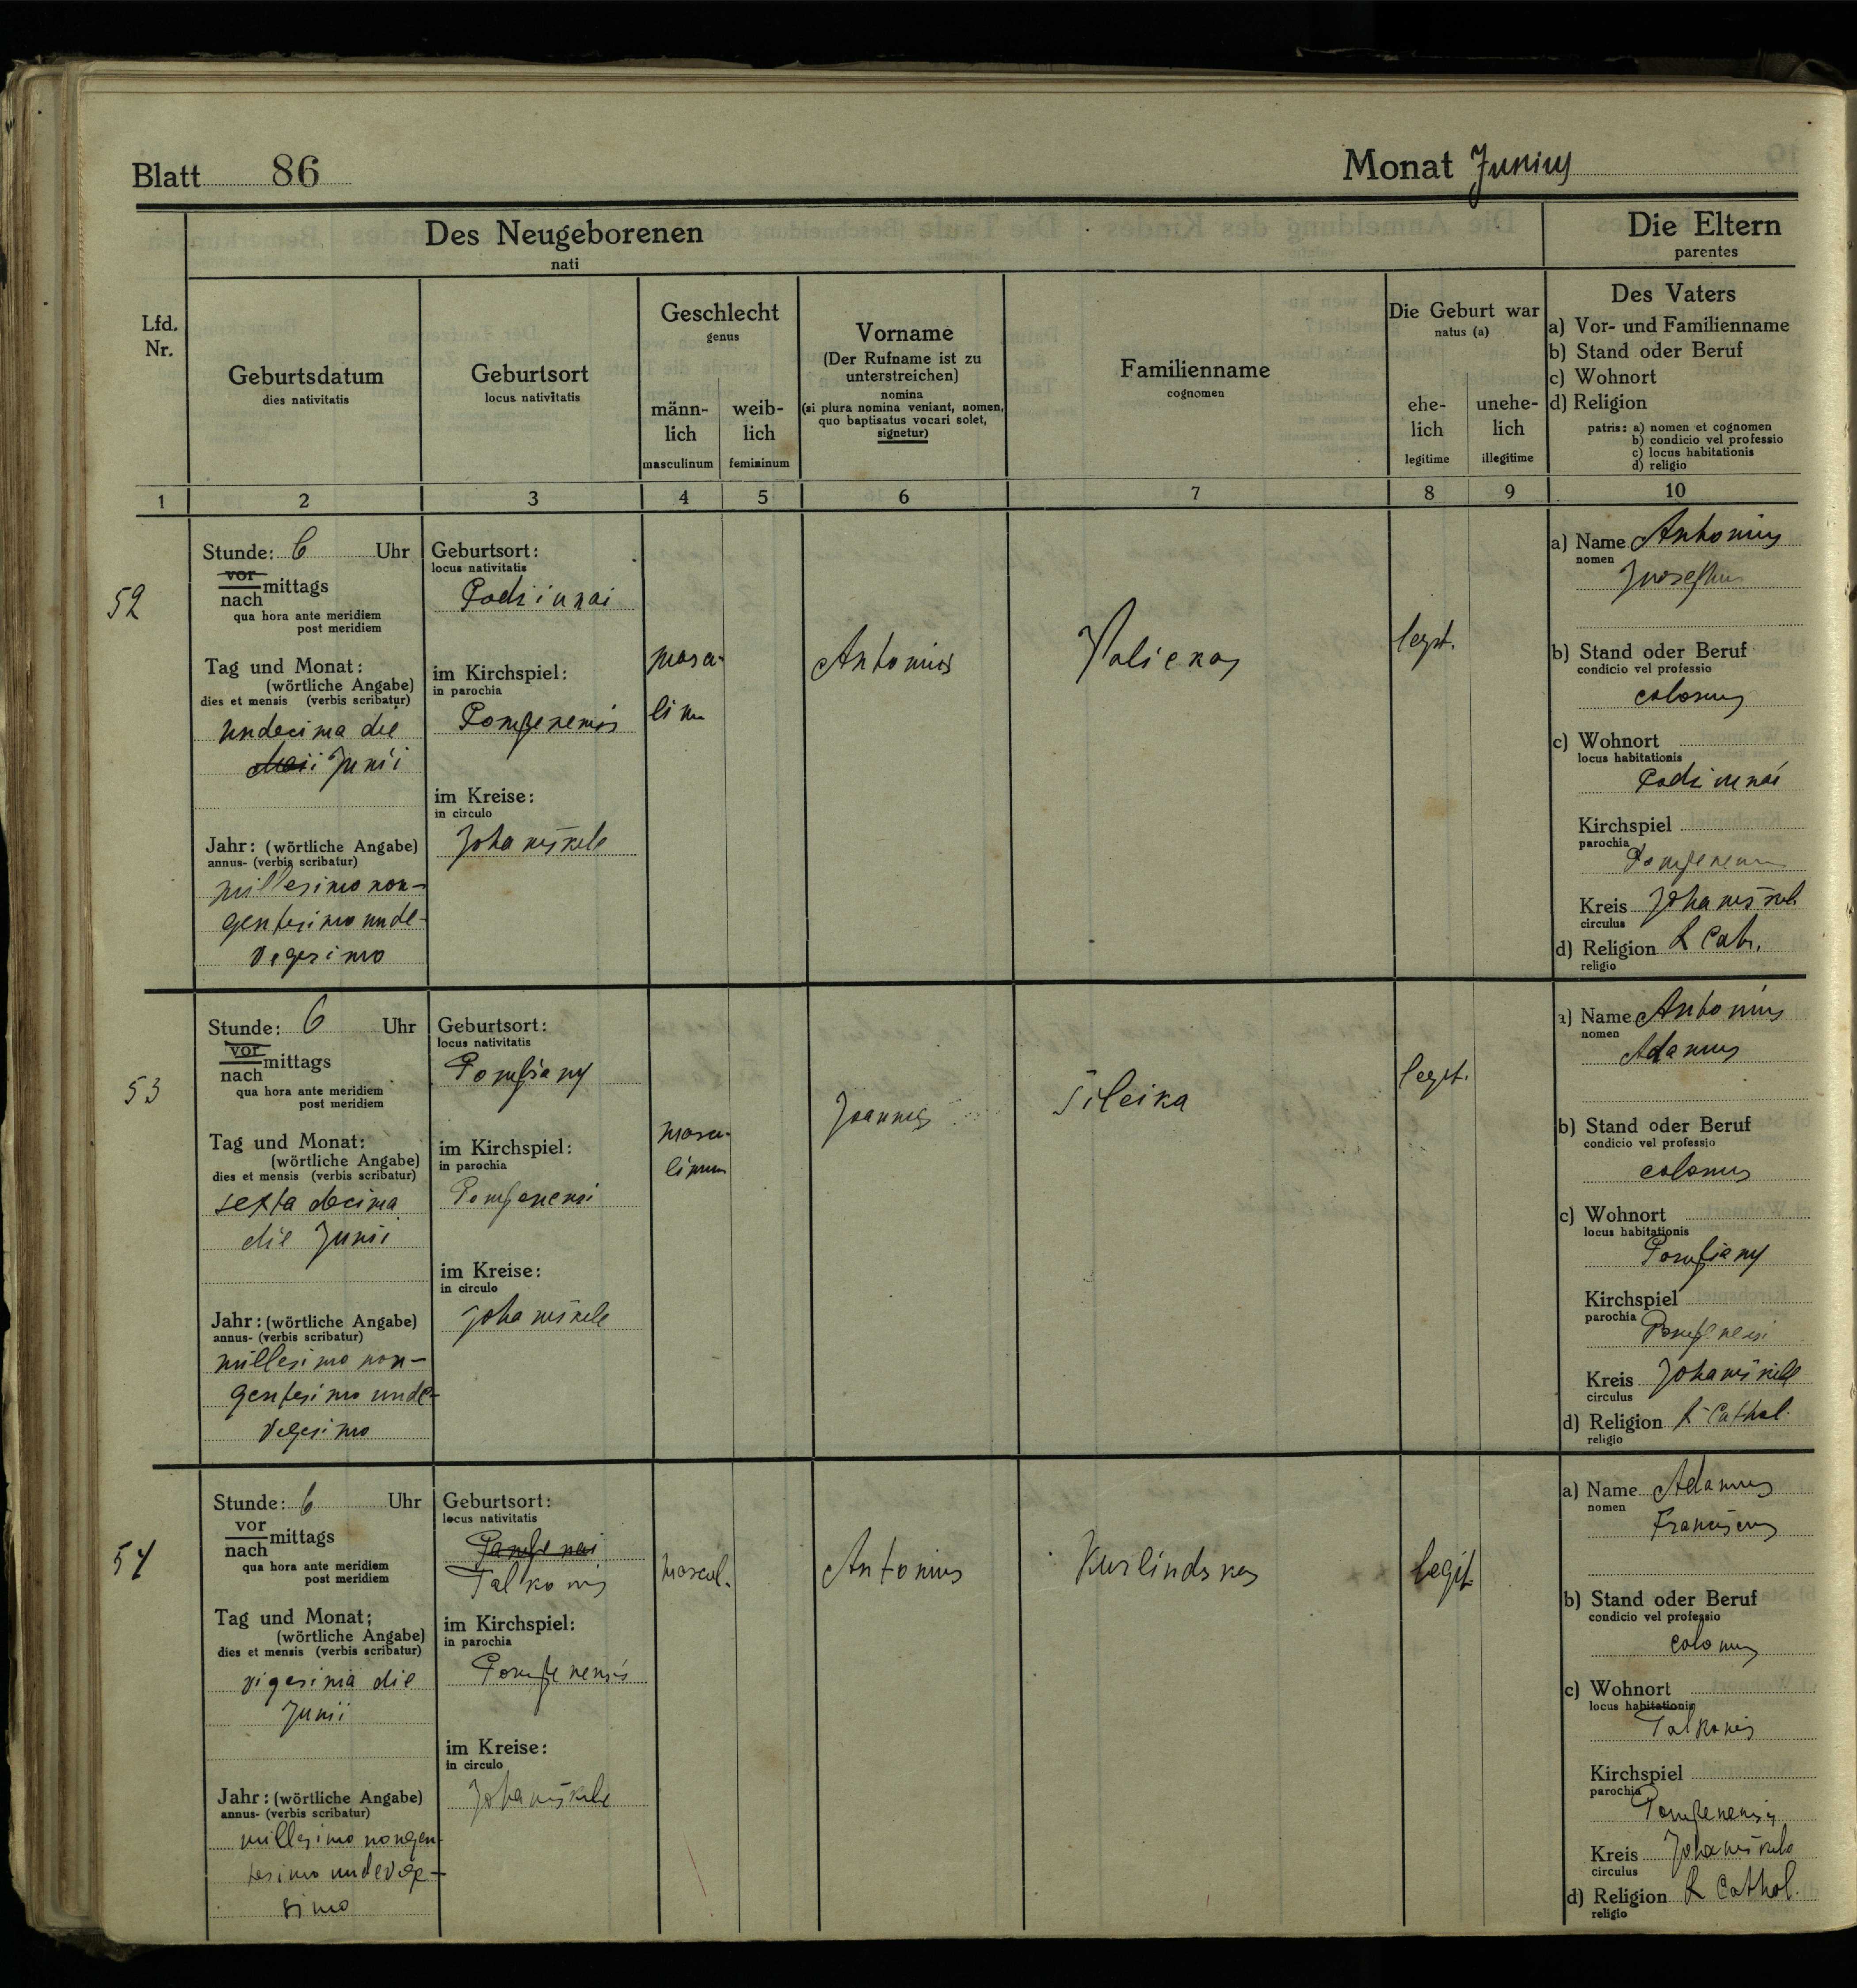 Blatt 86
Monat Junius
Des Neugeborenen
nati
Die Eltern
parentes
Lfd.
Nr.
Geburtsdatum
dies nativitatis
Geburtsort
locus nativitatis
Geschlecht
genus
männ-
lich
masculinum
weib-
lich
femininum
Vorname
(Der Rufname ist zu
unterstreichen)
nomina
(si plura nomina veniant, nomen,
quo baptisatus vocari solet,
signetur)
Familienname
cognomen
Die Geburt war
natus (a)
ehe-
lich
legitime
unehe-
lich
illegitime
Des Vaters
a) Vor- und Familienname
b) Stand oder Beruf
c) Wohnort
d) Religion
patris: a) nomen et cognomen
b) condicio vel professio
c) locus habitationis
d) religio
1 2 3 4 5 6 7 8 9 10
52
Stunde: 6 Uhr
vor
nach mittags
qua hora ante meridiem
post meridiem
Tag und Monat:
(wörtliche Angabe)
dies et mensis (verbis scribatur)
undecima die
Maii Junii
Jahr: (wörtliche Angabe)
annus- (verbis scribatur)
millesimo non-
gentesimo unde-
vigesimo
Geburtsort:
locus nativitatis
Podziunai
im Kirchspiel:
in parochia
im Kreise:
in circulo
Johaniškele
Antonius
Valickas
legit.
a) Name Antonius
nomen
Josephus
b) Stand oder Beruf
condicio vel professio
colonus
c) Wohnort
locus habitationis
Podziunai
Kirchspiel
parochia
Kreis
circulus
d) Religion R Cath.
religio
53
Stunde: 6 Uhr
vor
nach mittags
qua hora ante meridiem
post meridiem
Tag und Monat:
(wörtliche Angabe)
dies et mensis (verbis scribatur)
sexta decima
die Junii
Jahr: (wörtliche Angabe)
annus- (verbis scribatur)
millesimo non-
gentesimo unde-
vegesimo
Geburtsort:
locus nativitatis
Pompiany
im Kirchspiel:
in parochia
im Kreise:
in circulo
Johaniškele
Joannes
Šileika
legit.
a) Name Antonius
nomen
Adamus
b) Stand oder Beruf
condicio vel professio
colonus
c) Wohnort
locus habitationis
Pompiany
Kirchspiel
parochia
Kreis Johaniškele
circulus
d) Religion R Cathol.
religio
54
Stunde: 6 Uhr
vor
nach mittags
qua hora ante meridiem
post meridiem
Tag und Monat:
(wörtliche Angabe)
dies et mensis (verbis scribatur)
vigesima die
Junii
Jahr: (wörtliche Angabe)
annus- (verbis scribatur)
millesimo nongen-
tesimo undevige-
simo
Geburtsort:
locus nativitatis
Talkonis
im Kirchspiel:
in parochia
Pompenensis
im Kreise:
in circulo
Johaniškele
mascul.
Antonius
Kurlindskas
legit.
a) Name Adamus
nomen
Franciscus
b) Stand oder Beruf
condicio vel professio
colonus
c) Wohnort
locus habitationis
Talkonis
Kirchspiel
parochia
Pompenensis
Kreis Johaniškele
circulus
d) Religion R Cathol.
religio